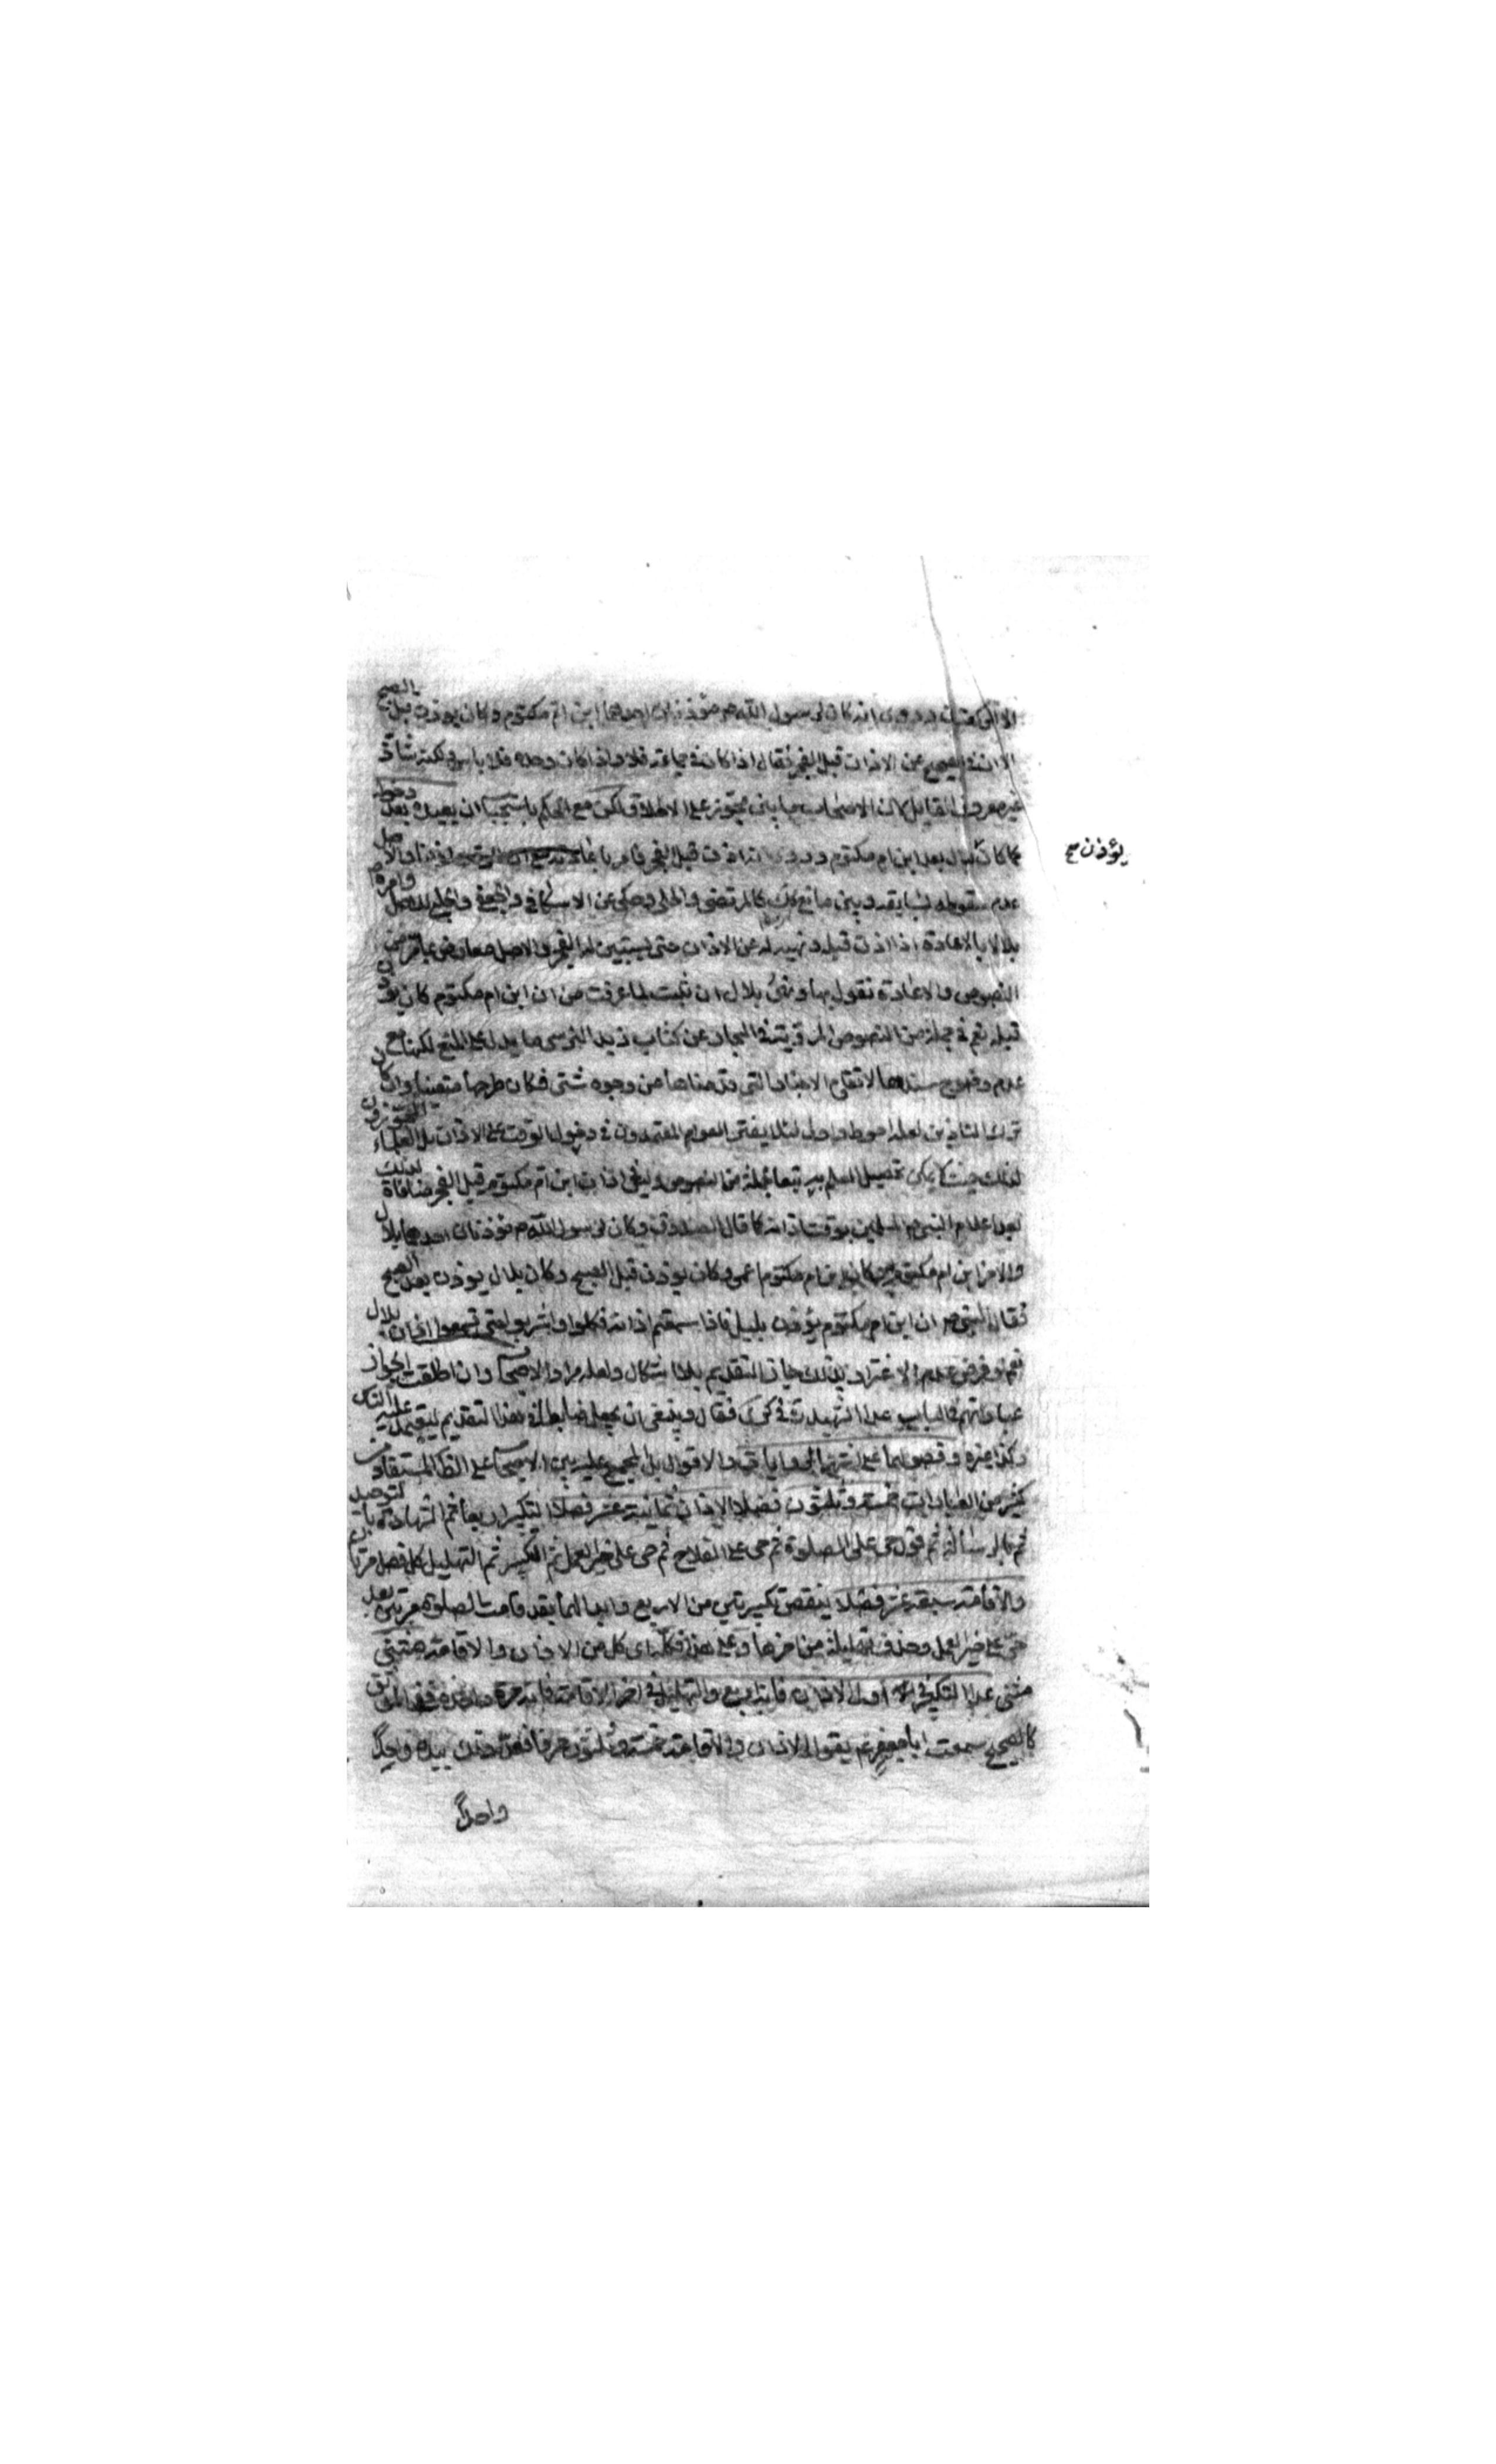 وروى انه كان لرسول الله ص مؤذنان احدهما ابن ام مكتوم وكان يوذن قبل الصبح
الا ان في الصحيح عن الاذان قبل الفجر فقال اذا كان في جماعة فلا واذا كان وحده فلا باس ولكنه شاذ
غير معروف القايل لان الاصحاب ما بين مجوز على الاطلاق لكن مع الحكم باستحباب ان يعيده بعد دخوله
كما كان بلال بعد ابن ام مكتوم وروى انه اذن قبل الفجر فامر باعادته والاصل
يؤذن صح
عدم سقوطه بسابقه وبين مانع كك كالمرتضى والحلى وحكى عن الاسكافي والجعفي والحلبي للاصل وامره ص
بلالا بالاعادة اذا اذن قبله ونهيه له عن الاذان حتى يستبين له الفجر والاصل معارض بما مر من
النصوص والاعادة نقول بها ونهى بلال ان ثبت لما عرفت من ان ابن ام مكتوم كان يوذن
قبله نعم في جملة من النصوص المروية في البحار عن كتاب زيد النرسى ما يدل على المنع لكنها مع
عدم وضوح سندها لا تقاوم الاخبار التي قدمناها من وجوه شتى فكان طرحها متعينا وان كان
ترك التاذين لعله احوط واولى لئلا يغتر العوام المعتمدون في دخول الوقت على الاذان بل العلماء المجوزون
لذلك حيث لا يمكن تحصيل العلم به تبعا لجملة من النصوص وليس في اذان ابن ام مكتوم قبل الفجر منافاة لذلك
بعد اعلام النبي ص المسلمين بوقت اذانه كما قال الصدوق وكان لرسول الله ص مؤذنان احدهما بلال
والاخر ابن ام مكتوم وكان ابن ام مكتوم اعمى وكان يوذن قبل الصبح وكان بلال يوذن بعد الصبح
فقال النبي ص ان ابن ام مكتوم يؤذن بليل فاذا سمعتم اذانه فكلوا واشربوا حتى تسمعوا اذان بلال
نعم لو فرض عدم الاغترار بذلك جاز التقديم بلا اشكال ولعله مراد الاصحاب وان اطلقت الجواز
عباراتهم في الباب عدا الشهيد ره في كرى فقال وينبغي ان يجعل ضابطا في هذا التقديم ليعتمد عليه الناس
وكذا غيره وفصولهما على اشهر الروايات والاقوال بل المجمع عليه بين الاصحاب على الظ المستفاد من
كثير من العبارات خمسة وثلثون فصلا الاذان ثمانية عشر فصلا التكبير اربعا ثم الشهادة بالتوحيد
ثم بالرسالة ثم قول حى على الصلوة ثم حى على الفلاح ثم حى على خير العمل ثم التكبير ثم التهليل كل فصل مرتان
والاقامة سبعة عشر فصلا ينقص تكبيرتين من الاربع وابدالهما بقد قامت الصلوة مرتين بعد
حى على خير العمل وحذف تهليلة من اخرها وعلى هذا فكل من الاذان والاقامة مثنى
مثنى عدا التكبير في اول الاذان فانه اربع والتهليل في اخر الاقامة فانه مرة
كالصحيح سمعت ابا جعفر ع يقول الاذان والاقامة خمسة وثلثون حرفا فعد ذلك بيده واحدا
واحدا